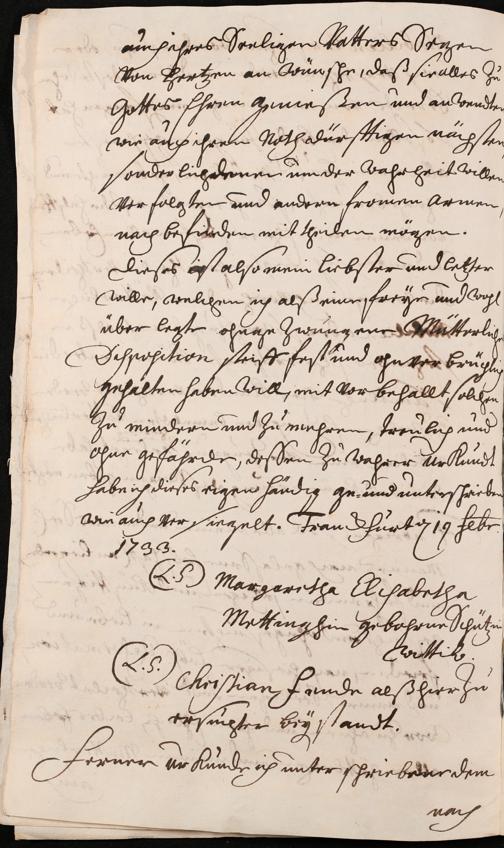 auch ihres Seeligen Vatters Seegen
Von Hertzen an wünsche, daß sie alles zu
Gottes Ehren genießen und anwenden
wie auch ihrem Nothdürfftigen nächsten
sonderlich denen um der Wahrheit willen
Verfolgten und andern fromen Armen,
nach befinden mittheilen mögen.
Dieses ist also mein liebster und letzter
wille, welchen ich alß eine freÿe und wohl
über legte ohngezwungene Mütterliche
Disposition steiff fest und ohnverbrüchlich
gehalten haben will, mit Vorbehallt solchen
zu mindern und zu mehren, treulich und
ohne gefährde, dessen zu wahrer Urkundt
habe ich dieses eigenhändig ge- und unterschrieben
wie auch versiegelt. Franckfurt 19 Febr
1733.
(L.S.) Margaretha Elisabetha
Mettinghin gebohrne Schützin
Wittib.
(L.S.) Christian Fende alß hier zu
ersuchter beÿstandt.
Ferner Urkunde ich unterschriebene dem
nach